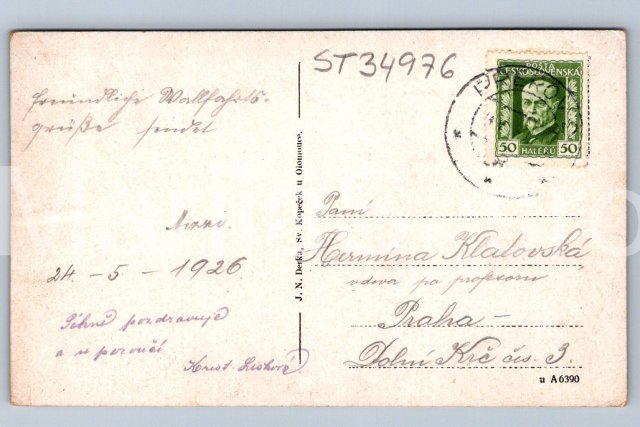 ST34976
POŠTA
ČESKOSLOVENSKÁ
50 HALÉŘŮ 50
freundliche Wallfahrts-
grüße sendet
Mizzi.
24 - 5 - 1926
Pěkně pozdravuje
a se poroučí
Krist.
J. N. Denka, Sv. Kopeček u Olomouce.
Paní
Hermina Klatovská
vdova po profesoru
Praha -
Dolní Krč čís. 3.
u A 6390